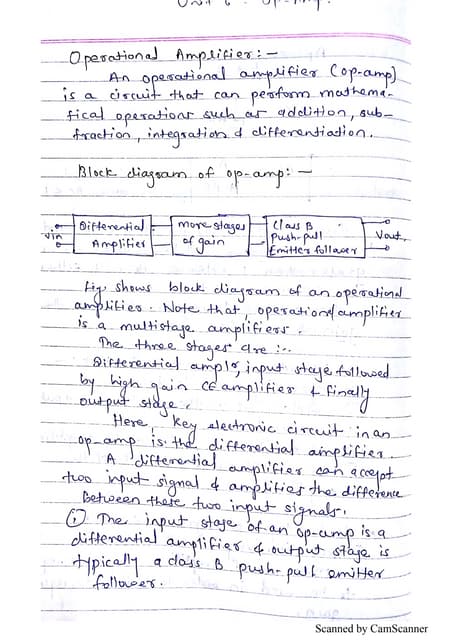 Unit 6 : Op-Amp.
Operational Amplifier :-
An operational amplifier (op-amp)
is a circuit that can perform mathema-
tical operations such as addition, sub-
traction, integration & differentiation.
Block diagram of op-amp: -
Vin
Differential
Amplifier
more stages
of gain
Class B
push-pull
Emitter follower
Vout.
Fig. shows block diagram of an operational
amplifier. Note that, operational amplifier
is a multistage amplifiers.
The three stages are :-
Differential ampl°, input stage followed
by high gain CE amplifier & finally
output stage.
Here, key electronic circuit in an
op-amp is the differential amplifier.
A differential amplifier can accept
two input signal & amplifies the difference
Between these two input signals.
① The input stage of an op-amp is a
differential amplifier & output stage is
typically a class B push-pull emitter
follower.
Scanned by CamScanner